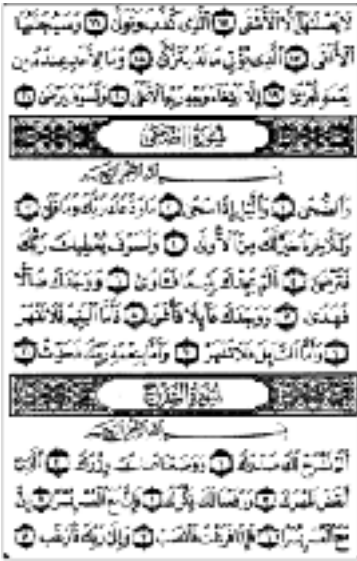 لا يصلىها إلا الأشقى ١٥ الذي كذب وتولى ١٦ وسيجنبها
الأتقى ١٧ الذي يؤتي ماله يتزكى ١٨ وما لأحد عنده من
نعمة تجزى ١٩ إلا ابتغاء وجه ربه الأعلى ٢٠ ولسوف يرضى ٢١
سورة الضحى
بسم الله الرحمن الرحيم
والضحى ١ والليل إذا سجى ٢ ما ودعك ربك وما قلى ٣
وللآخرة خير لك من الأولى ٤ ولسوف يعطيك ربك
فترضى ٥ ألم يجدك يتيما فآوى ٦ ووجدك ضالا
فهدى ٧ ووجدك عائلا فأغنى ٨ فأما اليتيم فلا تقهر
٩ وأما السائل فلا تنهر ١٠ وأما بنعمة ربك فحدث ١١
سورة الشرح
بسم الله الرحمن الرحيم
ألم نشرح لك صدرك ١ ووضعنا عنك وزرك ٢ الذي
أنقض ظهرك ٣ ورفعنا لك ذكرك ٤ فإن مع العسر يسرا ٥ إن
مع العسر يسرا ٦ فإذا فرغت فانصب ٧ وإلى ربك فارغب ٨